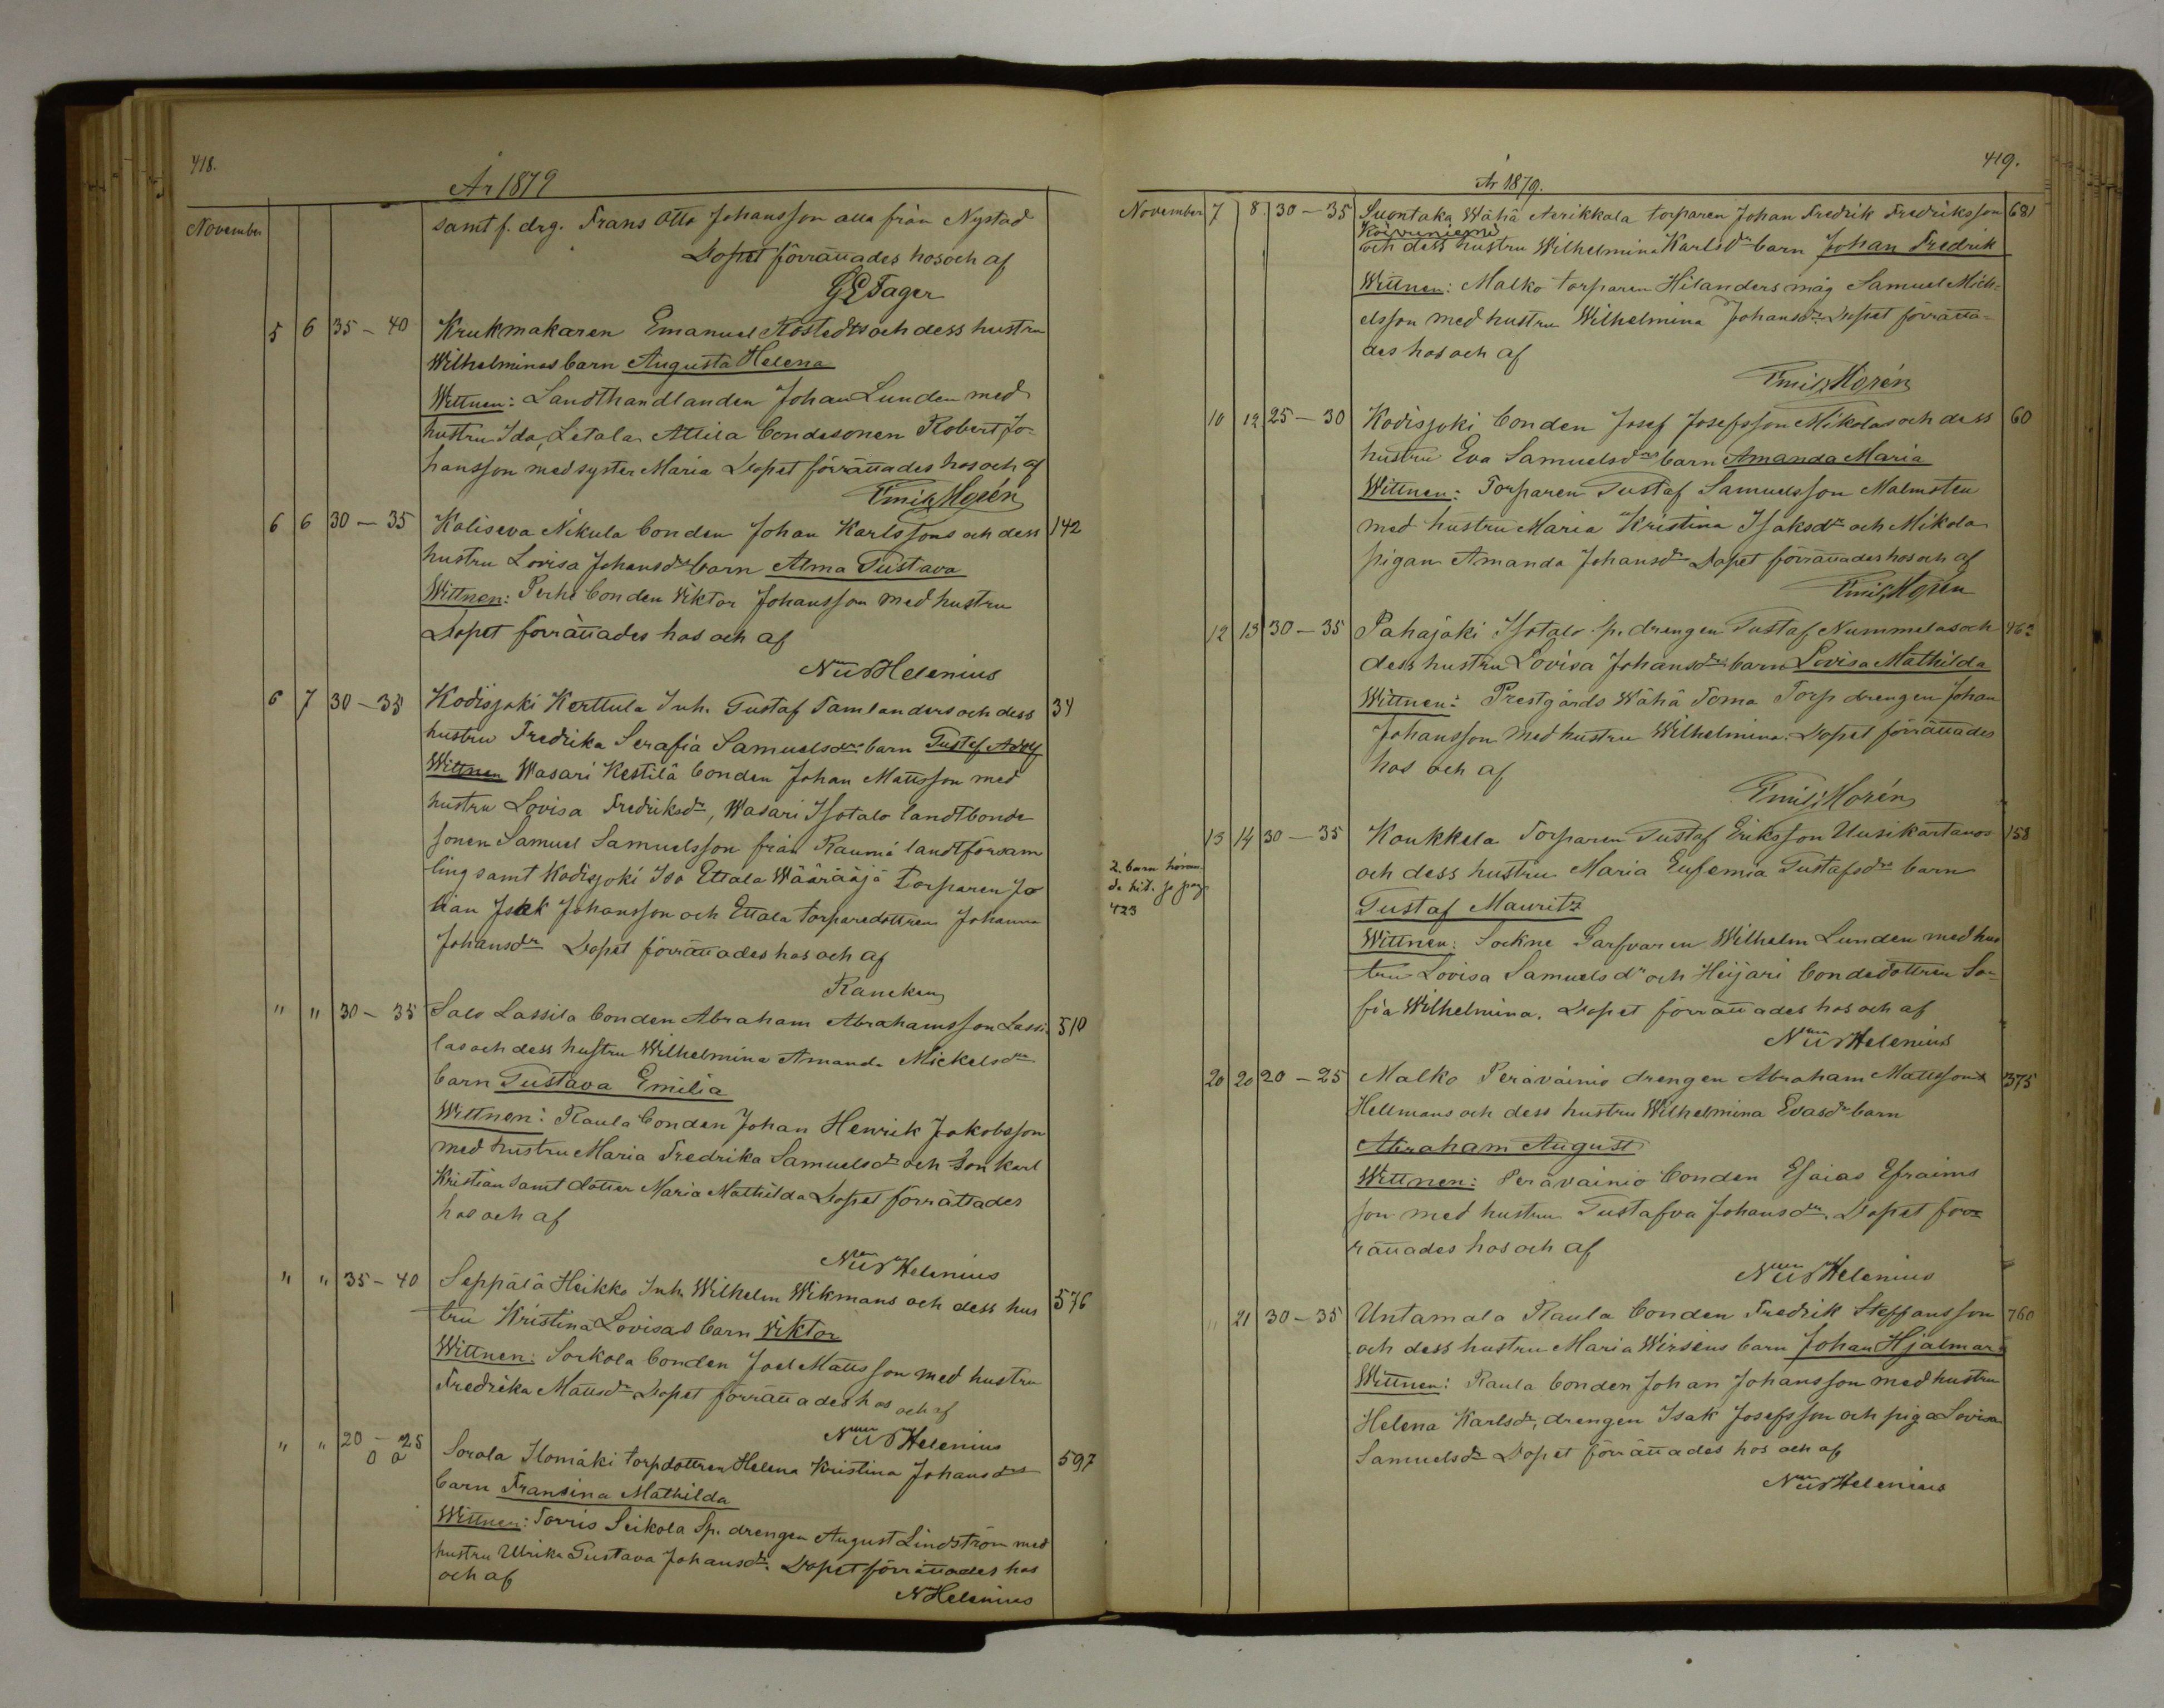 418.
År 1879
November
samt f. drg. Frans Otto Johansson alla från Nystad
Dopet förrättades hos och af
G E Fager
5 6 35 – 40 Krukmakaren Emanuel Rostedts och dess hustru
Wilhelminas barn Augusta Helena
Wittnen: Landthandlanden Johan Lunden med
hustru Ida, Letala Attila bondesonen Robert Jo-
hansson med syster Maria Dopet förrättades hos och af
Emil Morén
6 6 30 – 35 Kaliseva Nikula bonden Johan Karlssons och dess 142
hustru Lovisa Johansdrs barn Alma Gustava
Wittnen: Perhe bonden Viktor Johansson med hustru
Dopet förrättades hos och af
Helenius
6 7 30 – 35 Kodisjoki Kerttula Inh. Gustaf Tamlanders och dess 34
hustru Fredrika Serafia Samuelsdrs barn Gustaf Adolf
Wittnen Wasari Kestilä bonden Johan Mattsson med
hustru Lovisa Fredriksdr, Wasari Isotalo landtbonde
sonen Samuel Samuelsson från Raumå landtförsam
ling samt Kodisjoki Iso Ettala Wääräjä torparen Jo
han Isak Johansson och Ettala torparedottren Johanna
Johansdr Dopet förrättades hos och af
Rancken
" " 30 – 35 Salo Lassila bonden Abraham Abrahamsson Lassi- 510
las och dess hustru Wilhelmina Amanda Mickelsdrs
barn Gustava Emilia
Wittnen: Raula bonden Johan Henrik Jakobsson
med hustru Maria Fredrika Samuelsdr och Son Karl
Kristian samt dotter Maria Mathilda Dopet förrättades
hos och af
Helenius
" " 35 – 40 Seppälä Heikko Inh. Wilhelm Wikmans och dess hus 576
tru Kristina Lovisas barn Viktor
Wittnen: Sorkola bonden Joel Mattsson med hustru
Fredrika Mattsdr Dopet förrättades hos och af
Helenius
" " 20 – 25 Sorola Ilomäki torpdottren Helena Kristina Johansdrs 597
o ä
barn Fransina Mathilda
Wittnen: Torris Seikola Sp. drengen August Lindström med
hustru Ulrika Gustava Johansdr. Dopet förrättades hos
och af
N Helenius
419.
År 1879.
November 7 8. 30 – 35 Suontaka Wähä Aerikkala torparen Johan Fredrik Fredriksson 681
Koivuniemi
och dess hustru Wilhelmina Karlsdr barn Johan Fredrik
Wittnen: Malko torparen Hilanders måg Samuel Mick-
elsson med hustru Wilhelmina Johansdr. Dopet förrätta-
des hos och af
Emil Morén
10 12 25 – 30 Kodisjoki bonden Josef Josefsson Mikolas och dess 60
hustru Eva Samuelsdrs barn Amanda Maria
Wittnen: Torparen Gustaf Samuelsson Malmsten
med hustru Maria Kristina Isaksdr och Mikola
pigan Amanda Johansdr Dopet förrättades hos och af
Emil Morén
12 13 30 – 35 Pahajoki Isotalo sp. drengen Gustaf Nummelas och 463
dess hustru Lovisa Johansdrs barn Lovisa Mathilda
Wittnen: Prestgårds Wähä Toma Torp drengen Johan
Johansson med hustru Wilhelmina. Dopet förrättades
hos och af
Emil Morén
13 14 30 – 35 Koukkela Torparen Gustaf Eriksson Uusikartanos 158
2. barn höran-
de hit. se pag.
423
och dess hustru Maria Eufemia Gustafsdr barn
Gustaf Mauritz
Wittnen: Sockne Garfvaren Wilhelm Lunden med hus
tru Lovisa Samuelsdr och Heijari bondedottren So-
fia Wilhelmina. Dopet förrättades hos och af
Helenius
20 20 20 – 25 Malko Peräväinio drengen Abraham Mattsson 375
Hellmans och dess hustru Wilhelmina Evasdr barn
Abraham August
Wittnen: Peräväinio bonden Esaias Efraims
son med hustru Gustafva Johansdr. Dopet för
rättades hos och af
Helenius
" 21 30 – 35 Untamala Raula bonden Fredrik Steffansson 760
och dess hustru Maria Wirséns barn Johan Hjalmar
Wittnen: Raula bonden Johan Johansson med hustru
Helena Karlsdr, drengen Isak Josefsson och piga Lovisa
Samuelsdr Dopet förrättades hos och af
Helenius